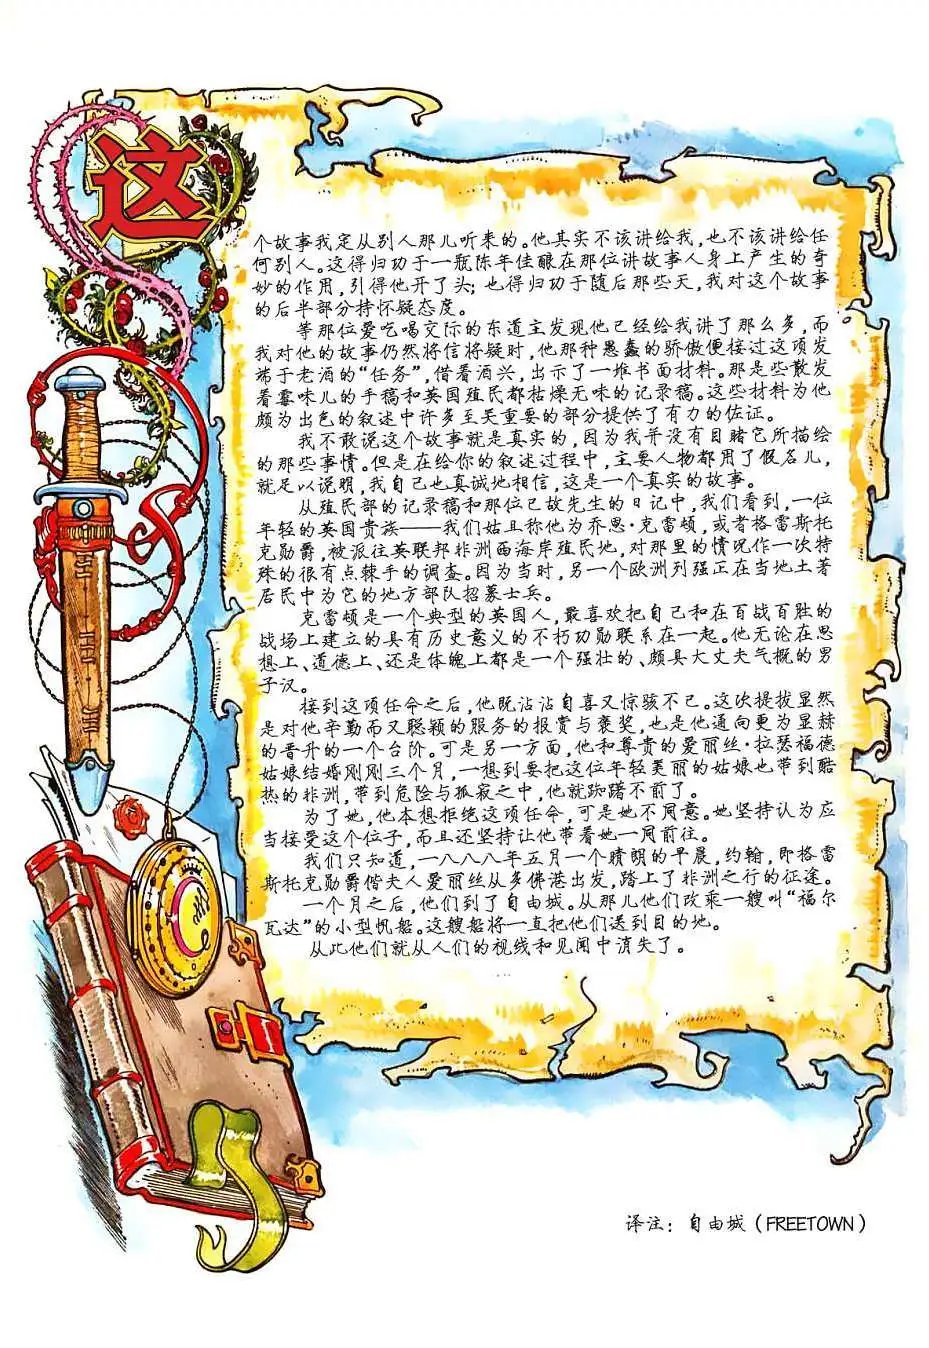 这
个故事我是从别人那儿听来的。他其实不该讲给我，也不该讲给任
何别人。这得归功于一瓶陈年佳酿在那位讲故事人身上产生的奇
妙的作用，引得他开了头；也得归功于随后那些天，我对这个故事
的后半部分持怀疑态度。
等那位爱吃喝交际的东道主发现他已经给我讲了那么多，而
我对他的故事仍然将信将疑时，他那种愚蠢的骄傲便接过这项发
端于老酒的“任务”，借着酒兴，出示了一堆书面材料。那是些散发
着霉味儿的手稿和英国殖民部枯燥无味的记录稿。这些材料为他
颇为出色的叙述中许多至关重要的部分提供了有力的佐证。
我不敢说这个故事就是真实的，因为我并没有目睹它所描绘
的那些事情。但是在给你的叙述过程中，主要人物都用了假名儿，
就足以说明，我自己也真诚地相信，这是一个真实的故事。
从殖民部的记录稿和那位已故先生的日记中，我们看到，一位
年轻的英国贵族——我们姑且称他为乔恩·克雷顿，或者格雷斯托
克勋爵，被派往英联邦非洲西海岸殖民地，对那里的情况作一次特
殊的很有点棘手的调查。因为当时，另一个欧洲列强正在当地土著
居民中为它的地方部队招募士兵。
克雷顿是一个典型的英国人，最喜欢把自己和在百战百胜的
战场上建立的具有历史意义的不朽功勋联系在一起。他无论在思
想上、道德上、还是体魄上都是一个强壮的、颇具大丈夫气概的男
子汉。
接到这项任命之后，他既沾沾自喜又惊骇不已。这次提拔显然
是对他辛勤而又聪颖的服务的报赏与褒奖，也是他通向更为显赫
的晋升的一个台阶。可是另一方面，他和尊贵的爱丽丝·拉瑟福德
姑娘结婚刚刚三个月，一想到要把这位年轻美丽的姑娘也带到酷
热的非洲，带到危险与孤寂之中，他就踟躇不前了。
为了她，他本想拒绝这项任命，可是她不同意。她坚持认为应
当接受这个位子，而且还坚持让他带着她一同前往。
我们只知道，一八八八年五月一个晴朗的早晨，约翰，即格雷
斯托克勋爵偕夫人爱丽丝从多佛港出发，踏上了非洲之行的征途。
一个月之后，他们到了自由城。从那儿他们改乘一艘叫“福尔
瓦达”的小型帆船。这艘船将一直把他们送到目的地。
从此他们就从人们的视线和见闻中消失了。
译注：自由城（FREETOWN）